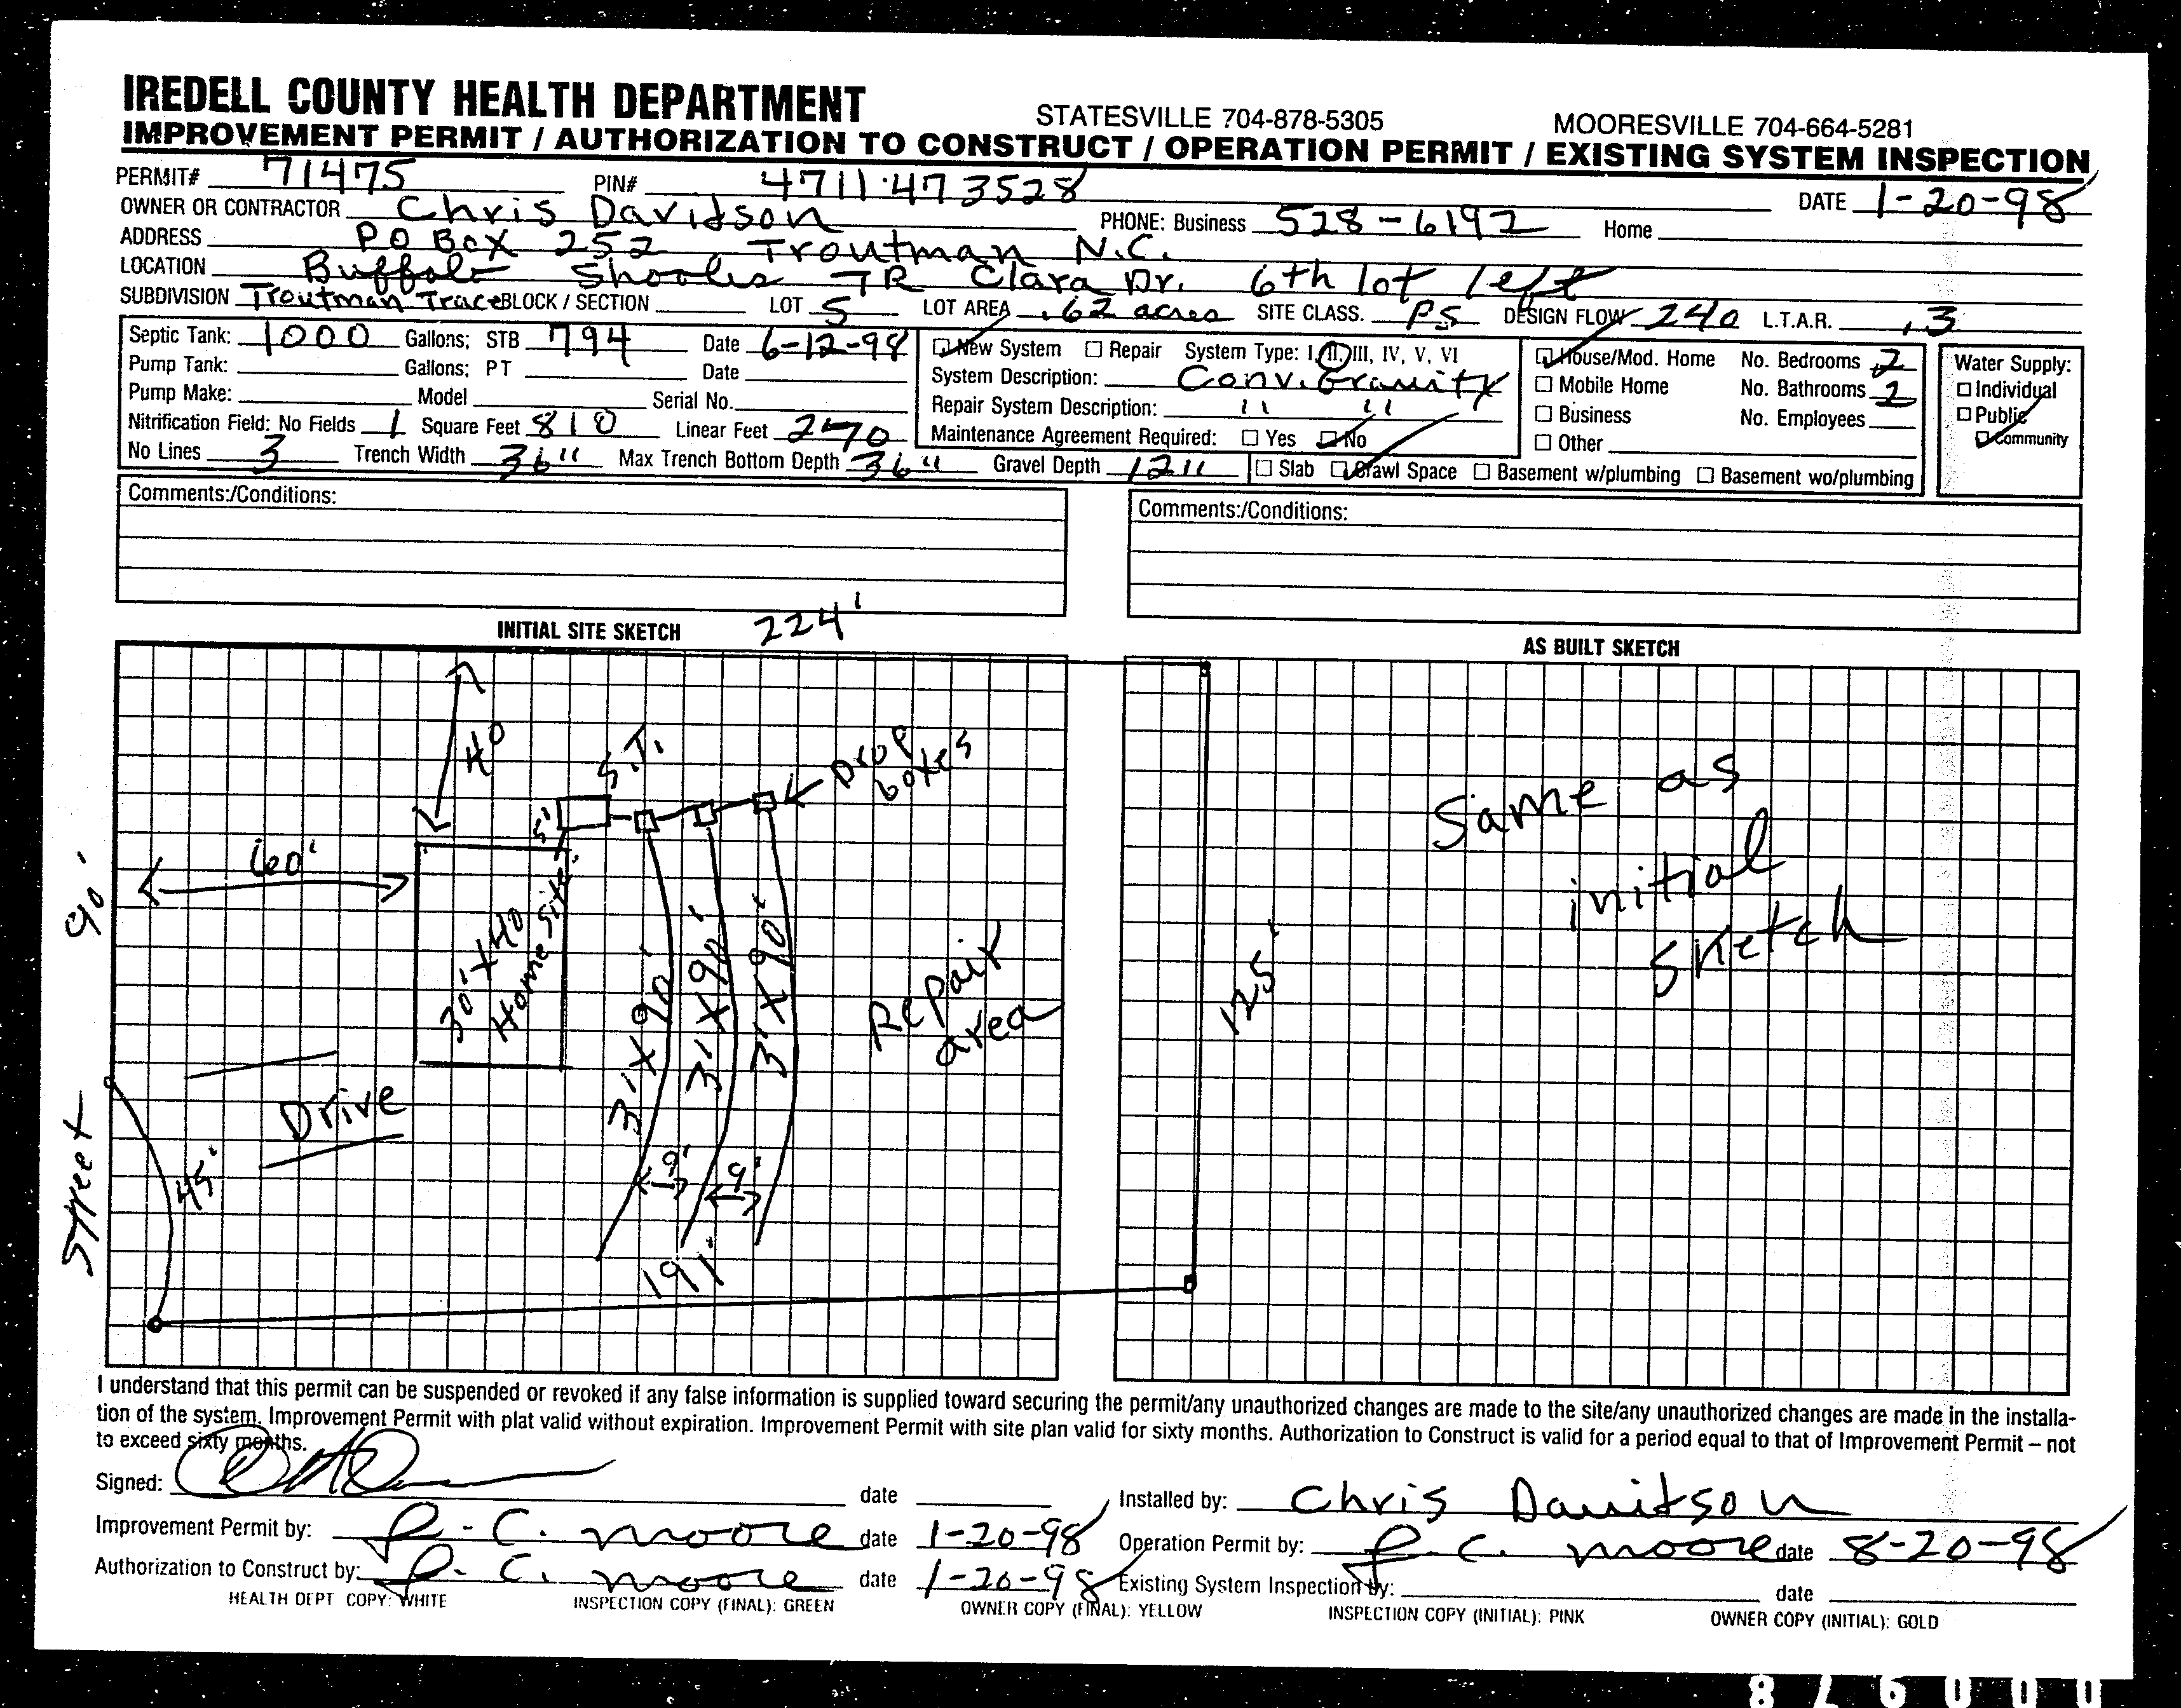 IREDELL COUNTY HEALTH DEPARTMENT STATESVILLE 704-878-5305 MOORESVILLE 704-664-5281
IMPROVEMENT PERMIT / AUTHORIZATION TO CONSTRUCT / OPERATION PERMIT / EXISTING SYSTEM INSPECTION
PERMIT# 71475 PIN# 4711.473528 DATE 1-20-98
OWNER OR CONTRACTOR Chris Davidson PHONE: Business 528-6192 Home
ADDRESS PO Box 252 Troutman N.C.
LOCATION Buffalo Shoals TR Clara Dr. 6th lot left
SUBDIVISION Troutman Trace BLOCK / SECTION LOT 5 LOT AREA .62 acres SITE CLASS. PS DESIGN FLOW 240 L.T.A.R. .3
Septic Tank: 1000 Gallons; STB 794 Date 6-12-98
Pump Tank: Gallons; PT Date
Pump Make: Model Serial No.
Nitrification Field: No Fields 1 Square Feet 810 Linear Feet 270
No Lines 3 Trench Width 36" Max Trench Bottom Depth 36" Gravel Depth 12"
New System Repair System Type: I, II, III, IV, V, VI
System Description: Conv. Gravity
Repair System Description: " "
Maintenance Agreement Required: Yes No
Slab Crawl Space Basement w/plumbing Basement wo/plumbing
House/Mod. Home No. Bedrooms 2
Mobile Home No. Bathrooms 2
Business No. Employees
Other
Water Supply:
Individual
Public
Community
Comments:/Conditions:
Comments:/Conditions:
INITIAL SITE SKETCH 224'
AS BUILT SKETCH
40
S.T.
Drop boxes
5'
60'
90'
30' X 40
Home Site
3' X 90'
3' X 90'
3' X 90'
Repair area
125'
Same as
initial
sketch
Drive
Street
45'
9'
9'
191'
I understand that this permit can be suspended or revoked if any false information is supplied toward securing the permit/any unauthorized changes are made to the site/any unauthorized changes are made in the installa-
tion of the system. Improvement Permit with plat valid without expiration. Improvement Permit with site plan valid for sixty months. Authorization to Construct is valid for a period equal to that of Improvement Permit – not
to exceed sixty months.
Signed: date Installed by: Chris Davidson
Improvement Permit by: R.C. Moore date 1-20-98 Operation Permit by: R.C. Moore date 8-20-98
Authorization to Construct by: R.C. Moore date 1-20-98 Existing System Inspection by: date
HEALTH DEPT COPY: WHITE INSPECTION COPY (FINAL): GREEN OWNER COPY (FINAL): YELLOW INSPECTION COPY (INITIAL): PINK OWNER COPY (INITIAL): GOLD